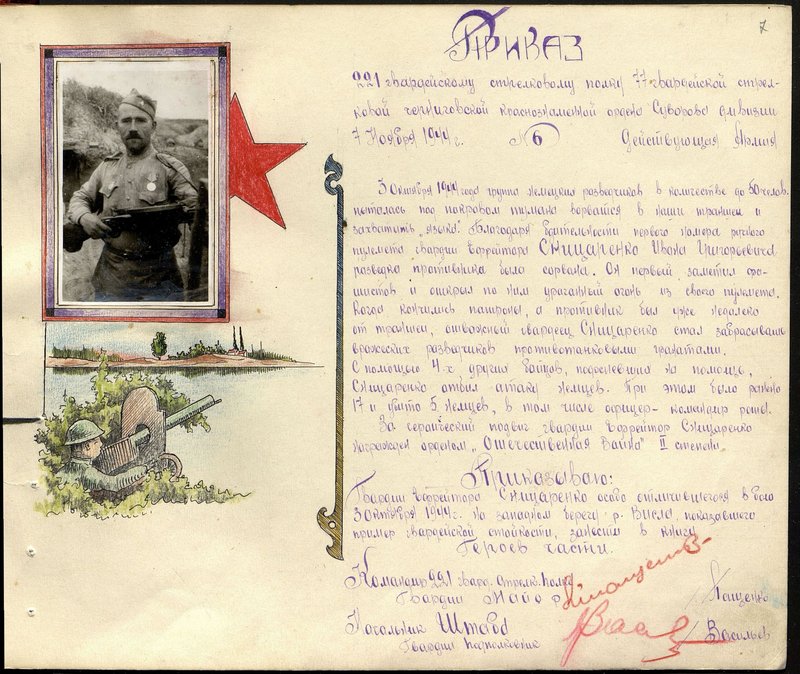 7
Приказ
221 гвардейскому стрелковому полку 77 гвардейской стрел-
ковой Черниговской Краснознаменной ордена Суворова дивизии
7 Ноября 1944 г. № 6 Действующая Армия
3 октября 1944 года группа немецких разведчиков в количестве до 50 челов.
пыталась под покровом тумана ворваться в наши траншеи и
захватить „языка". Благодаря бдительности первого номера ручного
пулемета гвардии ефрейтора Сницаренко Ивана Григорьевича
разведка противника была сорвана. Он первый заметил фа-
шистов и открыл по ним ураганный огонь из своего пулемета.
Когда кончились патроны, а противник был уже недалеко
от траншеи, отважный гвардеец Сницаренко стал забрасывать
вражеских разведчиков противотанковыми гранатами.
С помощью 4-х других бойцов, подоспевших на помощь,
Сницаренко отбил атаку немцев. При этом было ранено
17 и убито 5 немцев, в том числе офицер-командир роты.
За героический подвиг гвардии ефрейтор Сницаренко
награжден орденом „Отечественная Война" II степени.
Приказываю:
Гвардии ефрейтора Сницаренко особо отличившегося в бою
3 октября 1944 г. на западном берегу р. Висла, показавшего
пример гвардейской стойкости, занести в книгу
Героев части.
Командир 221 гвард. Стрелк. Полка
Гвардии Майор /Пащенко
Начальник Штаба
Гвардии подполковник /Васильев